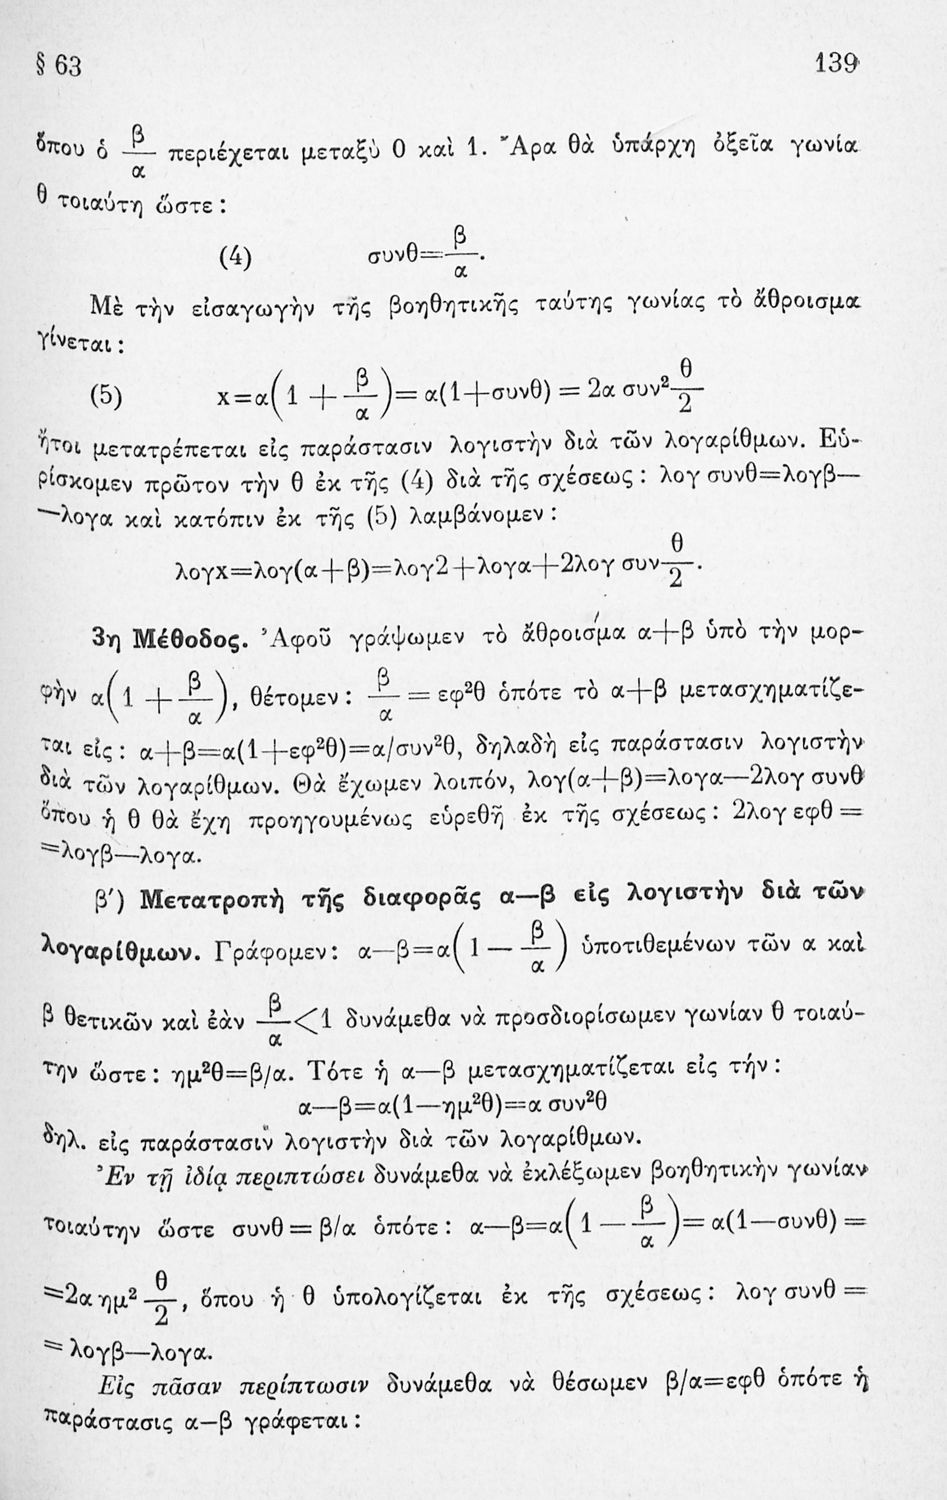 § 63 139
ὅπου ὁ β/α περιέχεται μεταξὺ 0 καὶ 1. Ἄρα θὰ ὑπάρχῃ ὀξεῖα γωνία
θ τοιαύτη ὥστε :
(4) συνθ=β/α.
Μὲ τὴν εἰσαγωγὴν τῆς βοηθητικῆς ταύτης γωνίας τὸ ἄθροισμα
γίνεται :
(5) x=α(1 + β/α)= α(1+συνθ) = 2α συν² θ/2
ἤτοι μετατρέπεται εἰς παράστασιν λογιστὴν διὰ τῶν λογαρίθμων. Εὑ-
ρίσκομεν πρῶτον τὴν θ ἐκ τῆς (4) διὰ τῆς σχέσεως : λογ συνθ=λογβ—
—λογα καὶ κατόπιν ἐκ τῆς (5) λαμβάνομεν :
λογx=λογ(α+β)=λογ2+λογα+2λογ συν θ/2.
3η Μέθοδος. Ἀφοῦ γράψωμεν τὸ ἄθροισμα α+β ὑπὸ τὴν μορ-
φὴν α(1 + β/α), θέτομεν : β/α = εφ²θ ὁπότε τὸ α+β μετασχηματίζε-
ται εἰς : α+β=α(1+εφ²θ)=α/συν²θ, δηλαδὴ εἰς παράστασιν λογιστὴν
διὰ τῶν λογαρίθμων. Θὰ ἔχωμεν λοιπόν, λογ(α+β)=λογα—2λογ συνθ
ὅπου ἡ θ θὰ ἔχη προηγουμένως εὑρεθῆ ἐκ τῆς σχέσεως : 2λογ εφθ =
=λογβ—λογα.
β′) Μετατροπὴ τῆς διαφορᾶς α—β εἰς λογιστὴν διὰ τῶν
λογαρίθμων. Γράφομεν : α—β=α(1 — β/α) ὑποτιθεμένων τῶν α καὶ
β θετικῶν καὶ ἐὰν β/α<1 δυνάμεθα νὰ προσδιορίσωμεν γωνίαν θ τοιαύ-
την ὥστε : ημ²θ=β/α. Τότε ἡ α—β μετασχηματίζεται εἰς τήν :
α—β=α(1—ημ²θ)=α συν²θ
δηλ. εἰς παράστασιν λογιστὴν διὰ τῶν λογαρίθμων.
Ἐν τῇ ἰδίᾳ περιπτώσει δυνάμεθα νὰ ἐκλέξωμεν βοηθητικὴν γωνίαν
τοιαύτην ὥστε συνθ = β/α ὁπότε : α—β=α(1 — β/α)= α(1—συνθ) =
=2α ημ² θ/2, ὅπου ἡ θ ὑπολογίζεται ἐκ τῆς σχέσεως : λογ συνθ =
= λογβ—λογα.
Εἰς πᾶσαν περίπτωσιν δυνάμεθα νὰ θέσωμεν β/α=εφθ ὁπότε ἡ
παράστασις α—β γράφεται :